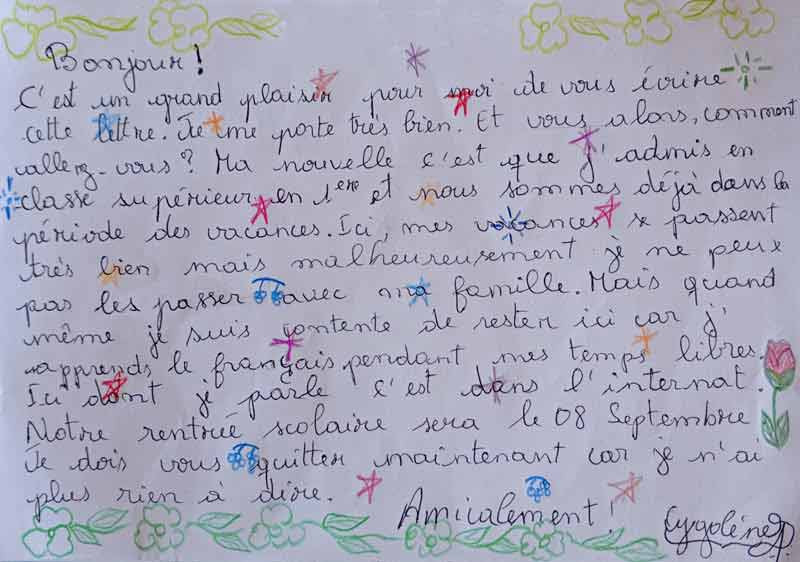 Bonjour !
C'est un grand plaisir pour moi de vous écrire
cette lettre. Je me porte très bien. Et vous alors, comment
allez-vous ? Ma nouvelle c'est que j'admis en
classe supérieur en 1ere et nous sommes déjà dans la
période des vacances. Ici, mes vacances se passent
très bien mais malheureusement je ne peux
pas les passer avec ma famille. Mais quand
même je suis contente de rester ici car j'
apprends le français pendant mes temps libres.
Ici dont je parle c'est dans l'internat.
Notre rentrée scolaire sera le 08 Septembre
Je dois vous quitter maintenant car je n'ai
plus rien à dire.
Amicalement !